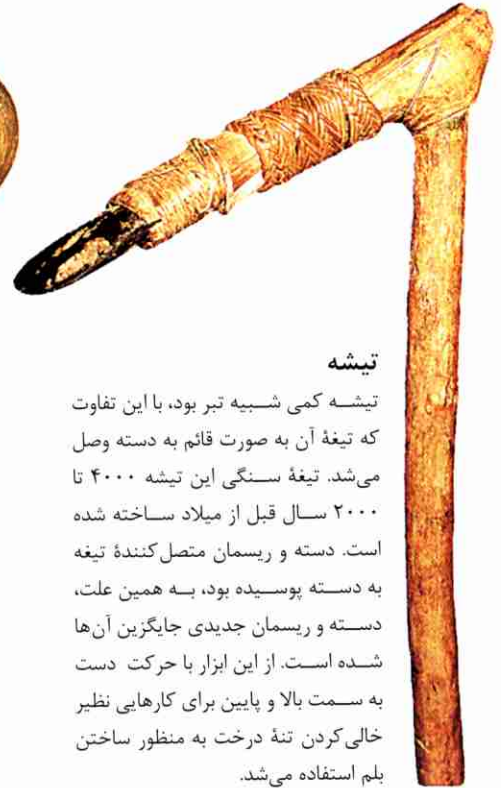 تیشه
تیشه کمی شبیه تبر بود، با این تفاوت
که تیغهٔ آن به صورت قائم به دسته وصل
می‌شد. تیغهٔ سنگی این تیشه ۴۰۰۰ تا
۲۰۰۰ سال قبل از میلاد ساخته شده
است. دسته و ریسمان متصل‌کنندهٔ تیغه
به دسته پوسیده بود، به همین علت،
دسته و ریسمان جدیدی جایگزین آن‌ها
شده است. از این ابزار با حرکت دست
به سمت بالا و پایین برای کارهایی نظیر
خالی‌کردن تنهٔ درخت به منظور ساختن
بلم استفاده می‌شد.